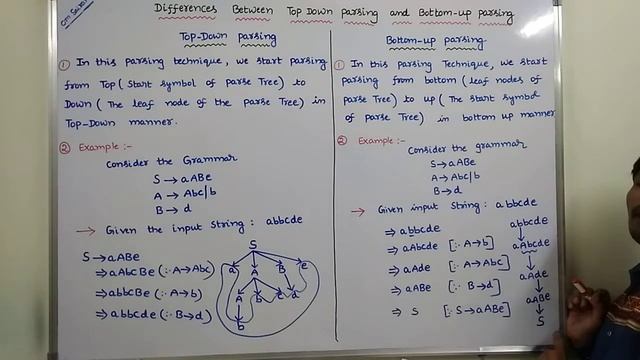 Om Sairam
Differences Between Top Down parsing and Bottom-up parsing
Top-Down parsing
① In this parsing technique, we start parsing
from Top (Start symbol of parse Tree) to
Down (The leaf node of the parse Tree) in
Top-Down manner.
② Example :-
Consider the Grammar
S → aABe
A → Abc|b
B → d
→ Given the input String : abbcde
S → aABe
⇒ aAbcBe (∵ A→Abc)
⇒ abbcBe (∵ A→b)
⇒ abbcde (∵ B→d)
S
a A B e
A b c d
b
Bottom-up parsing
① In this parsing Technique, we start
parsing from bottom (leaf nodes of
parse Tree) to up (The start symbol
of parse Tree) in bottom up manner
② Example :-
Consider the grammar
S → aABe
A → Abc|b
B → d
→ Given input String : abbcde
⇒ abbcde
⇒ aAbcde [∵ A→b]
⇒ aAde [∵ A→Abc]
⇒ aABe [∵ B→d]
⇒ S [∵ S→aABe]
abbcde
aAbcde
aAde
aABe
S